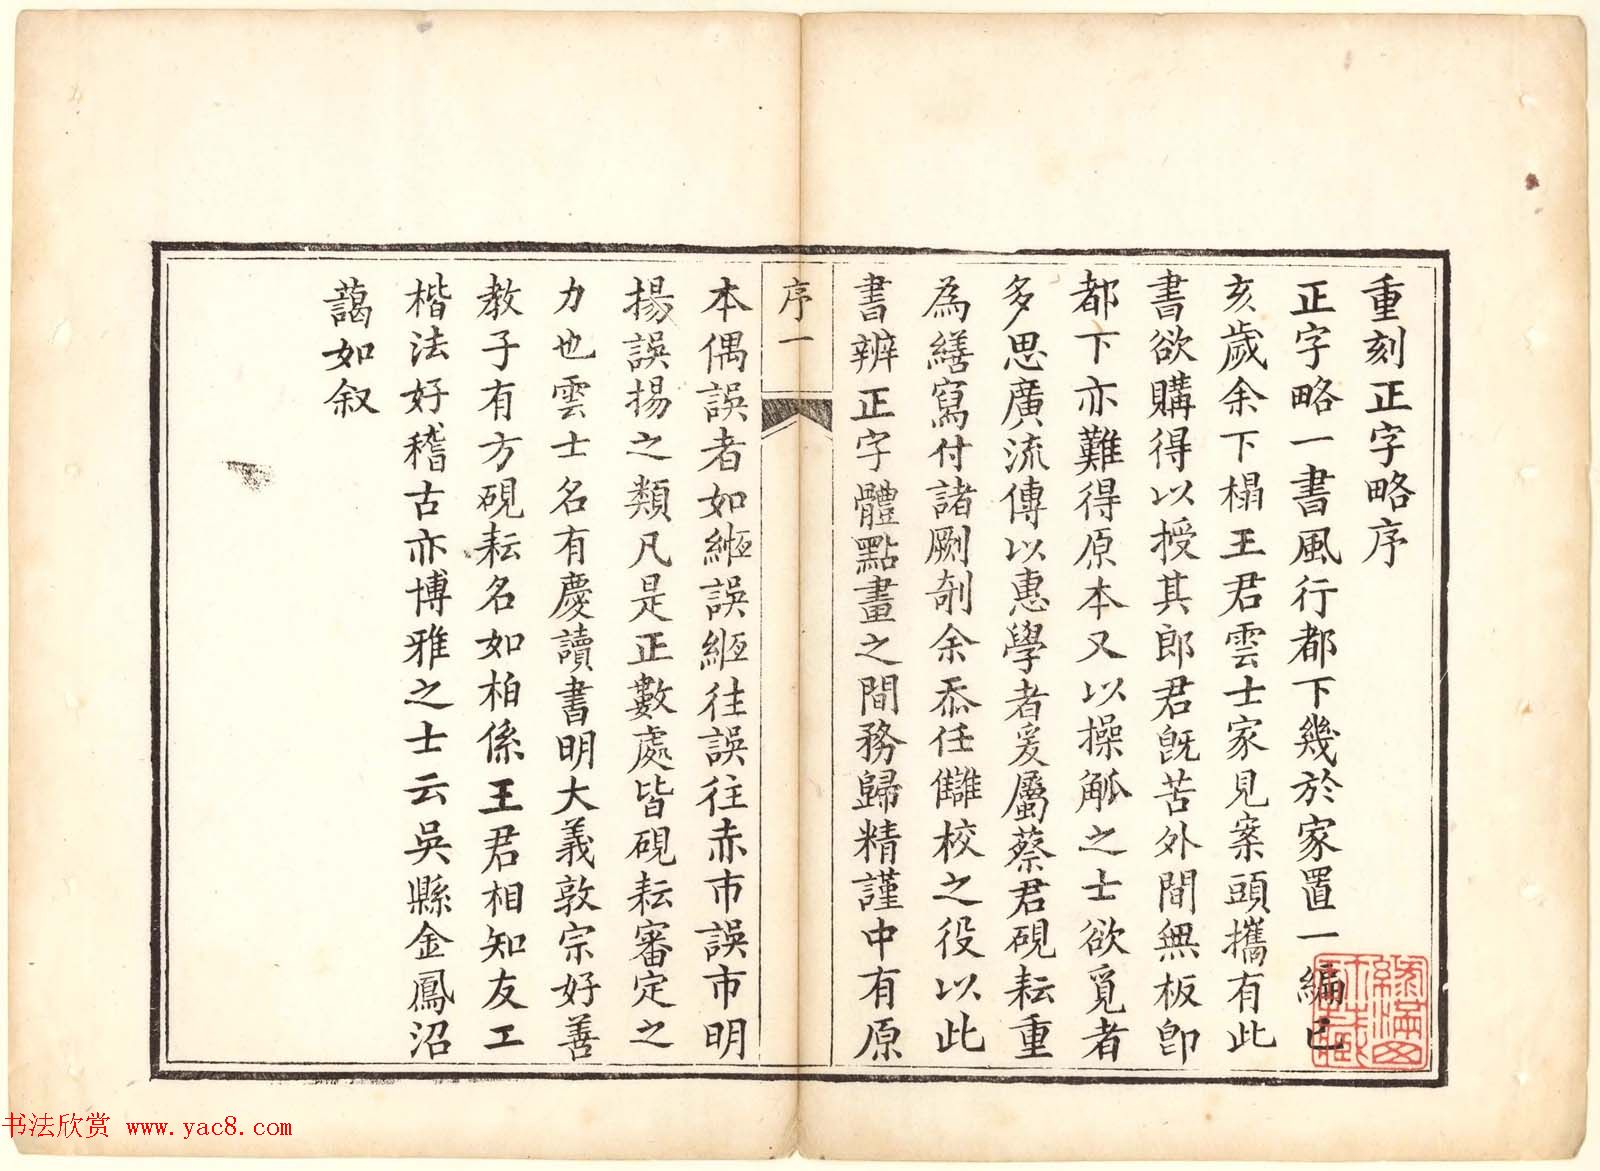 重刻正字略序
正字略一書風行都下幾於家置一編已
亥歲余下榻王君雲士家見案頭攜有此
書欲購得以授其郎君旣苦外間無板卽
都下亦難得原本又以操觚之士欲覓者
多思廣流傳以惠學者爰屬蔡君硯耘重
為繕寫付諸剞劂余忝任讎校之役以此
書辨正字體點畫之間務歸精謹中有原
序一
本偶誤者如縆誤絚往誤往赤巿誤市明
揚誤揚之類凡是正數處皆硯耘審定之
力也雲士名有慶讀書明大義敦宗好善
教子有方硯耘名如柏係王君相知友工
楷法好稽古亦博雅之士云吳縣金鳳沼
藹如叙
书法欣赏 www.yac8.com